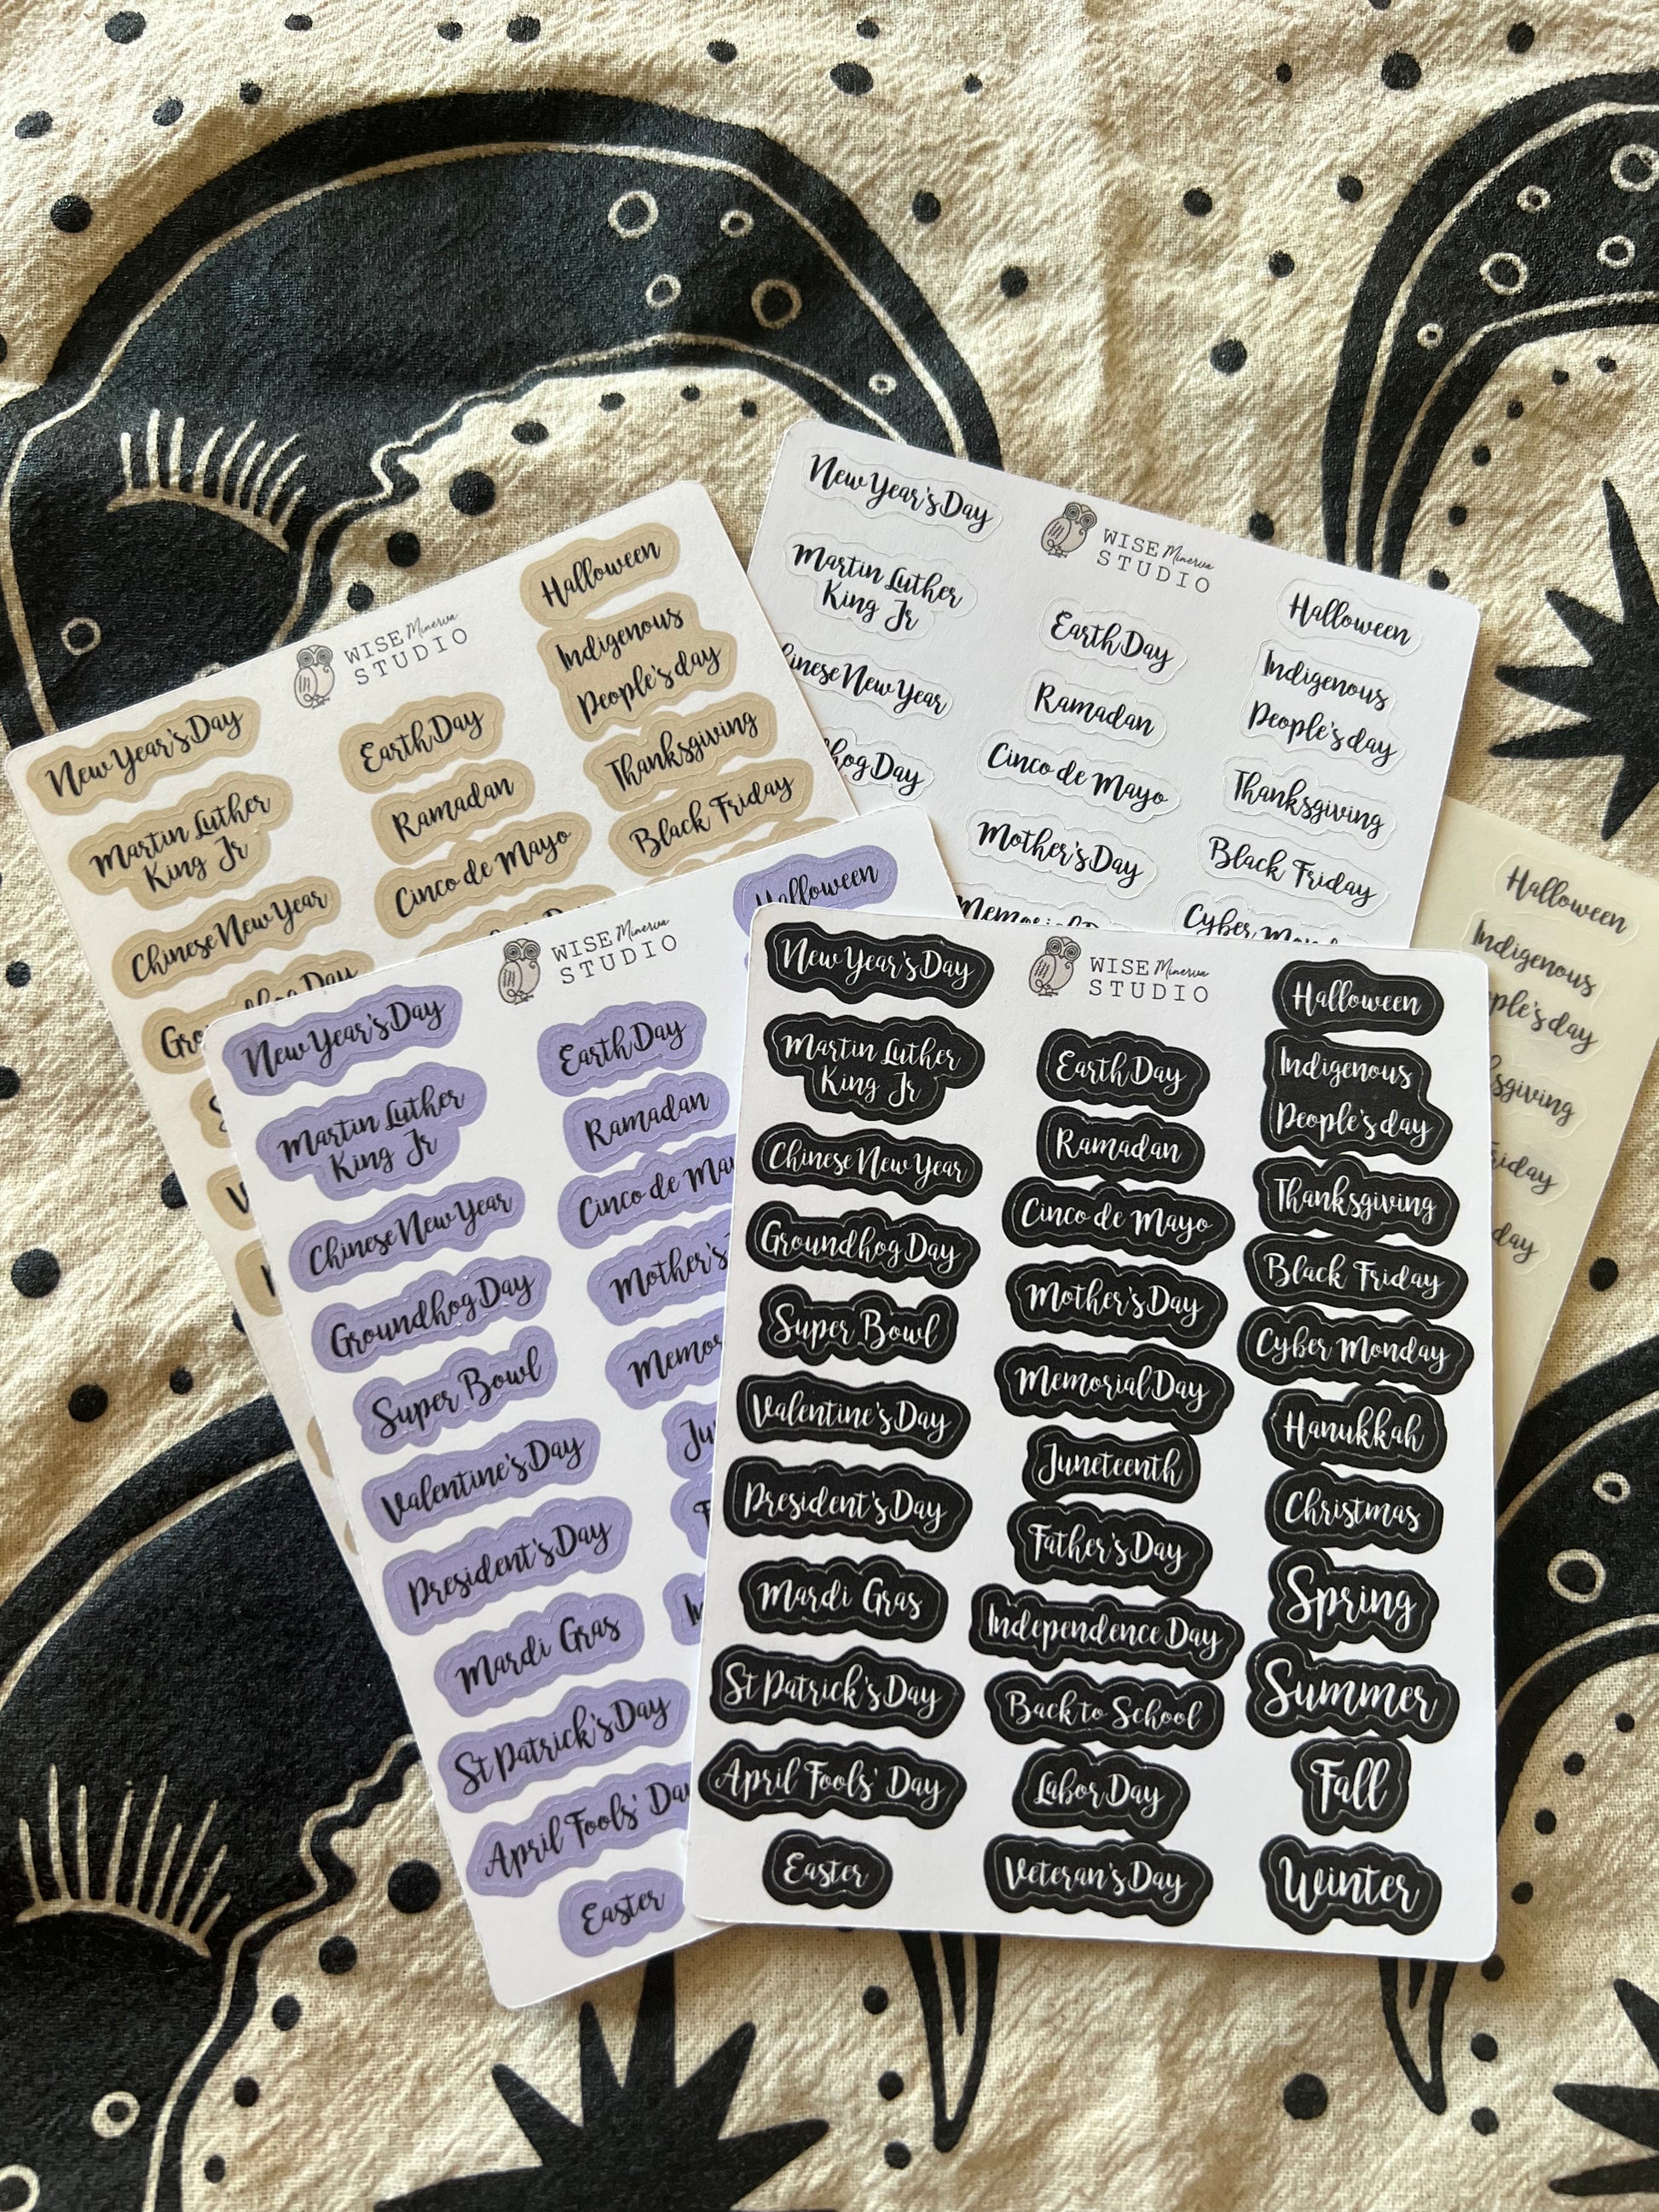 New Year's Day
Martin Luther
King Jr
Year
Day
WISE Minerva
STUDIO
Earth Day
Ramadan
Cinco de Mayo
Mother's Day
Halloween
Indigenous
People's day
Thanksgiving
Black Friday
Cyber
New Year's Day
Martin Luther
King Jr
Chinese New Year
Day
WISE Minerva
STUDIO
Earth Day
Ramadan
Cinco de Mayo
Halloween
Indigenous
People's day
Thanksgiving
Black Friday
Halloween
Indigenous
day
day
New Year's Day
Martin Luther
King Jr
Chinese New Year
Groundhog Day
Super Bowl
Valentine's Day
President's Day
Mardi Gras
St Patrick's Day
April Fools' Day
Easter
WISE Minerva
STUDIO
Earth Day
Ramadan
Cinco de
Halloween
New Year's Day
Martin Luther
King Jr
Chinese New Year
Groundhog Day
Super Bowl
Valentine's Day
President's Day
Mardi Gras
St Patrick's Day
April Fools' Day
Easter
WISE Minerva
STUDIO
Earth Day
Ramadan
Cinco de Mayo
Mother's Day
Memorial Day
Juneteenth
Father's Day
Independence Day
Back to School
Labor Day
Veteran's Day
Halloween
Indigenous
People's day
Thanksgiving
Black Friday
Cyber Monday
Hanukkah
Christmas
Spring
Summer
Fall
Winter